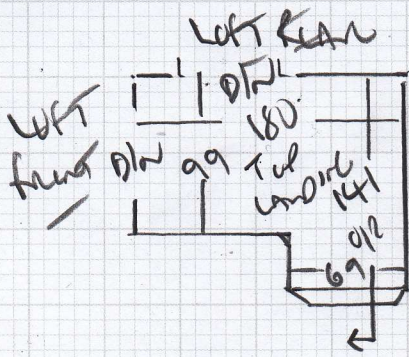 LOFT PLAN
D/N
180
LOFT
FRONT D/N 99 TOP
LANDING 141
O/R
69